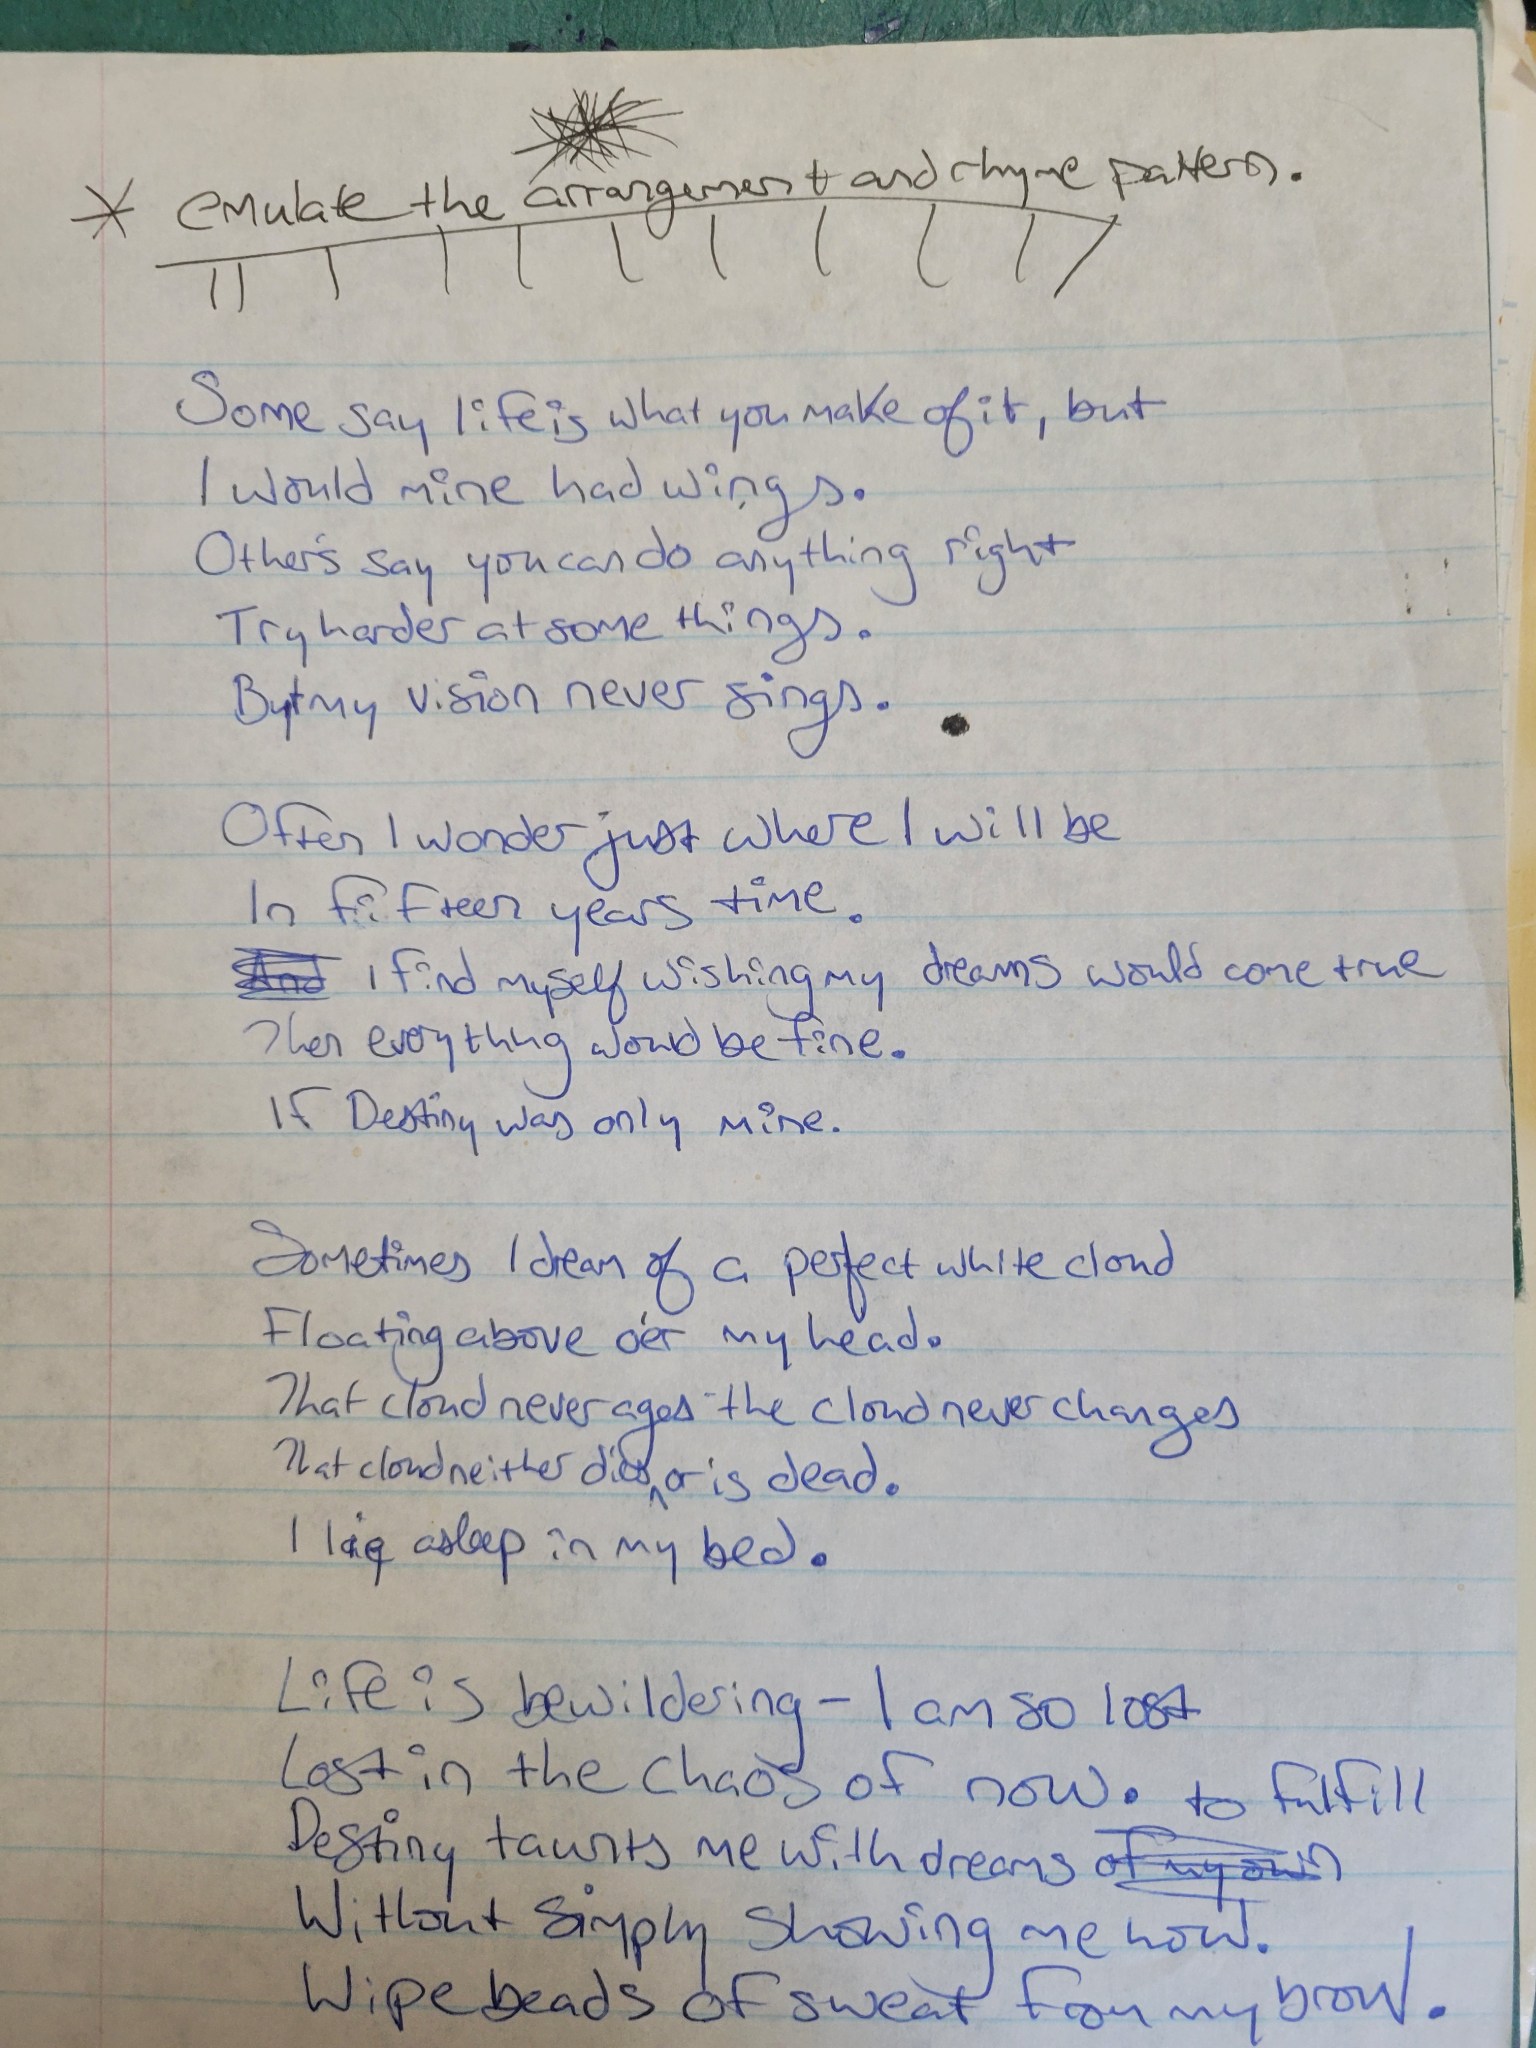 * emulate the arrangement and rhyme pattern.
Some say life is what you make of it, but
I would mine had wings.
Other's say you can do anything right
Try harder at some things.
But my vision never sings.
Often I wonder just where I will be
In fifteen years time.
I find myself wishing my dreams would come true
Then everything would be fine.
If Destiny was only mine.
Sometimes I dream of a perfect white cloud
Floating above o'er my head.
That cloud never ages - the cloud never changes
That cloud neither dies, or is dead.
I lie asleep in my bed.
Life is bewildering - I am so lost
Lost in the chaos of now.
Destiny taunts me with dreams to fulfill
Without simply showing me how.
Wipe beads of sweat from my brow.